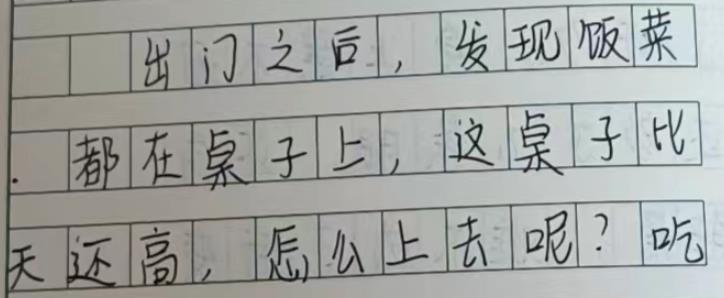 出门之后，发现饭菜
都在桌子上，这桌子比
天还高，怎么上去呢？吃